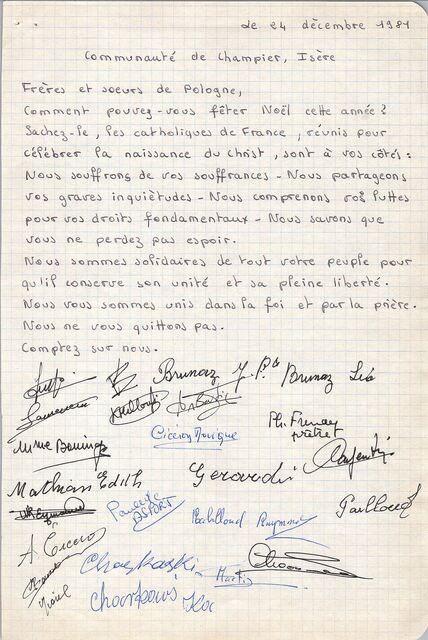 Le 24 décembre 1981
Communauté de Champier, Isère
Frères et soeurs de Pologne,
Comment pouvez-vous fêter Noël cette année?
Sachez-le, les catholiques de France, réunis pour
célébrer la naissance du Christ, sont à vos côtés:
Nous souffrons de vos souffrances - Nous partageons
vos graves inquiétudes - Nous comprenons vos luttes
pour vos droits fondamentaux - Nous savons que
vous ne perdez pas espoir.
Nous sommes solidaires de tout votre peuple pour
qu'il conserve son unité et sa pleine liberté.
Nous vous sommes unis dans la foi et par la prière.
Nous ne vous quittons pas.
Comptez sur nous.
Brunaz J. P. Brunaz Léa
Cicéron Monique
prêtre
Mathian Edith
Gerardi
Paulette
Badilloud
Pailloud
A Cicéron
Martin